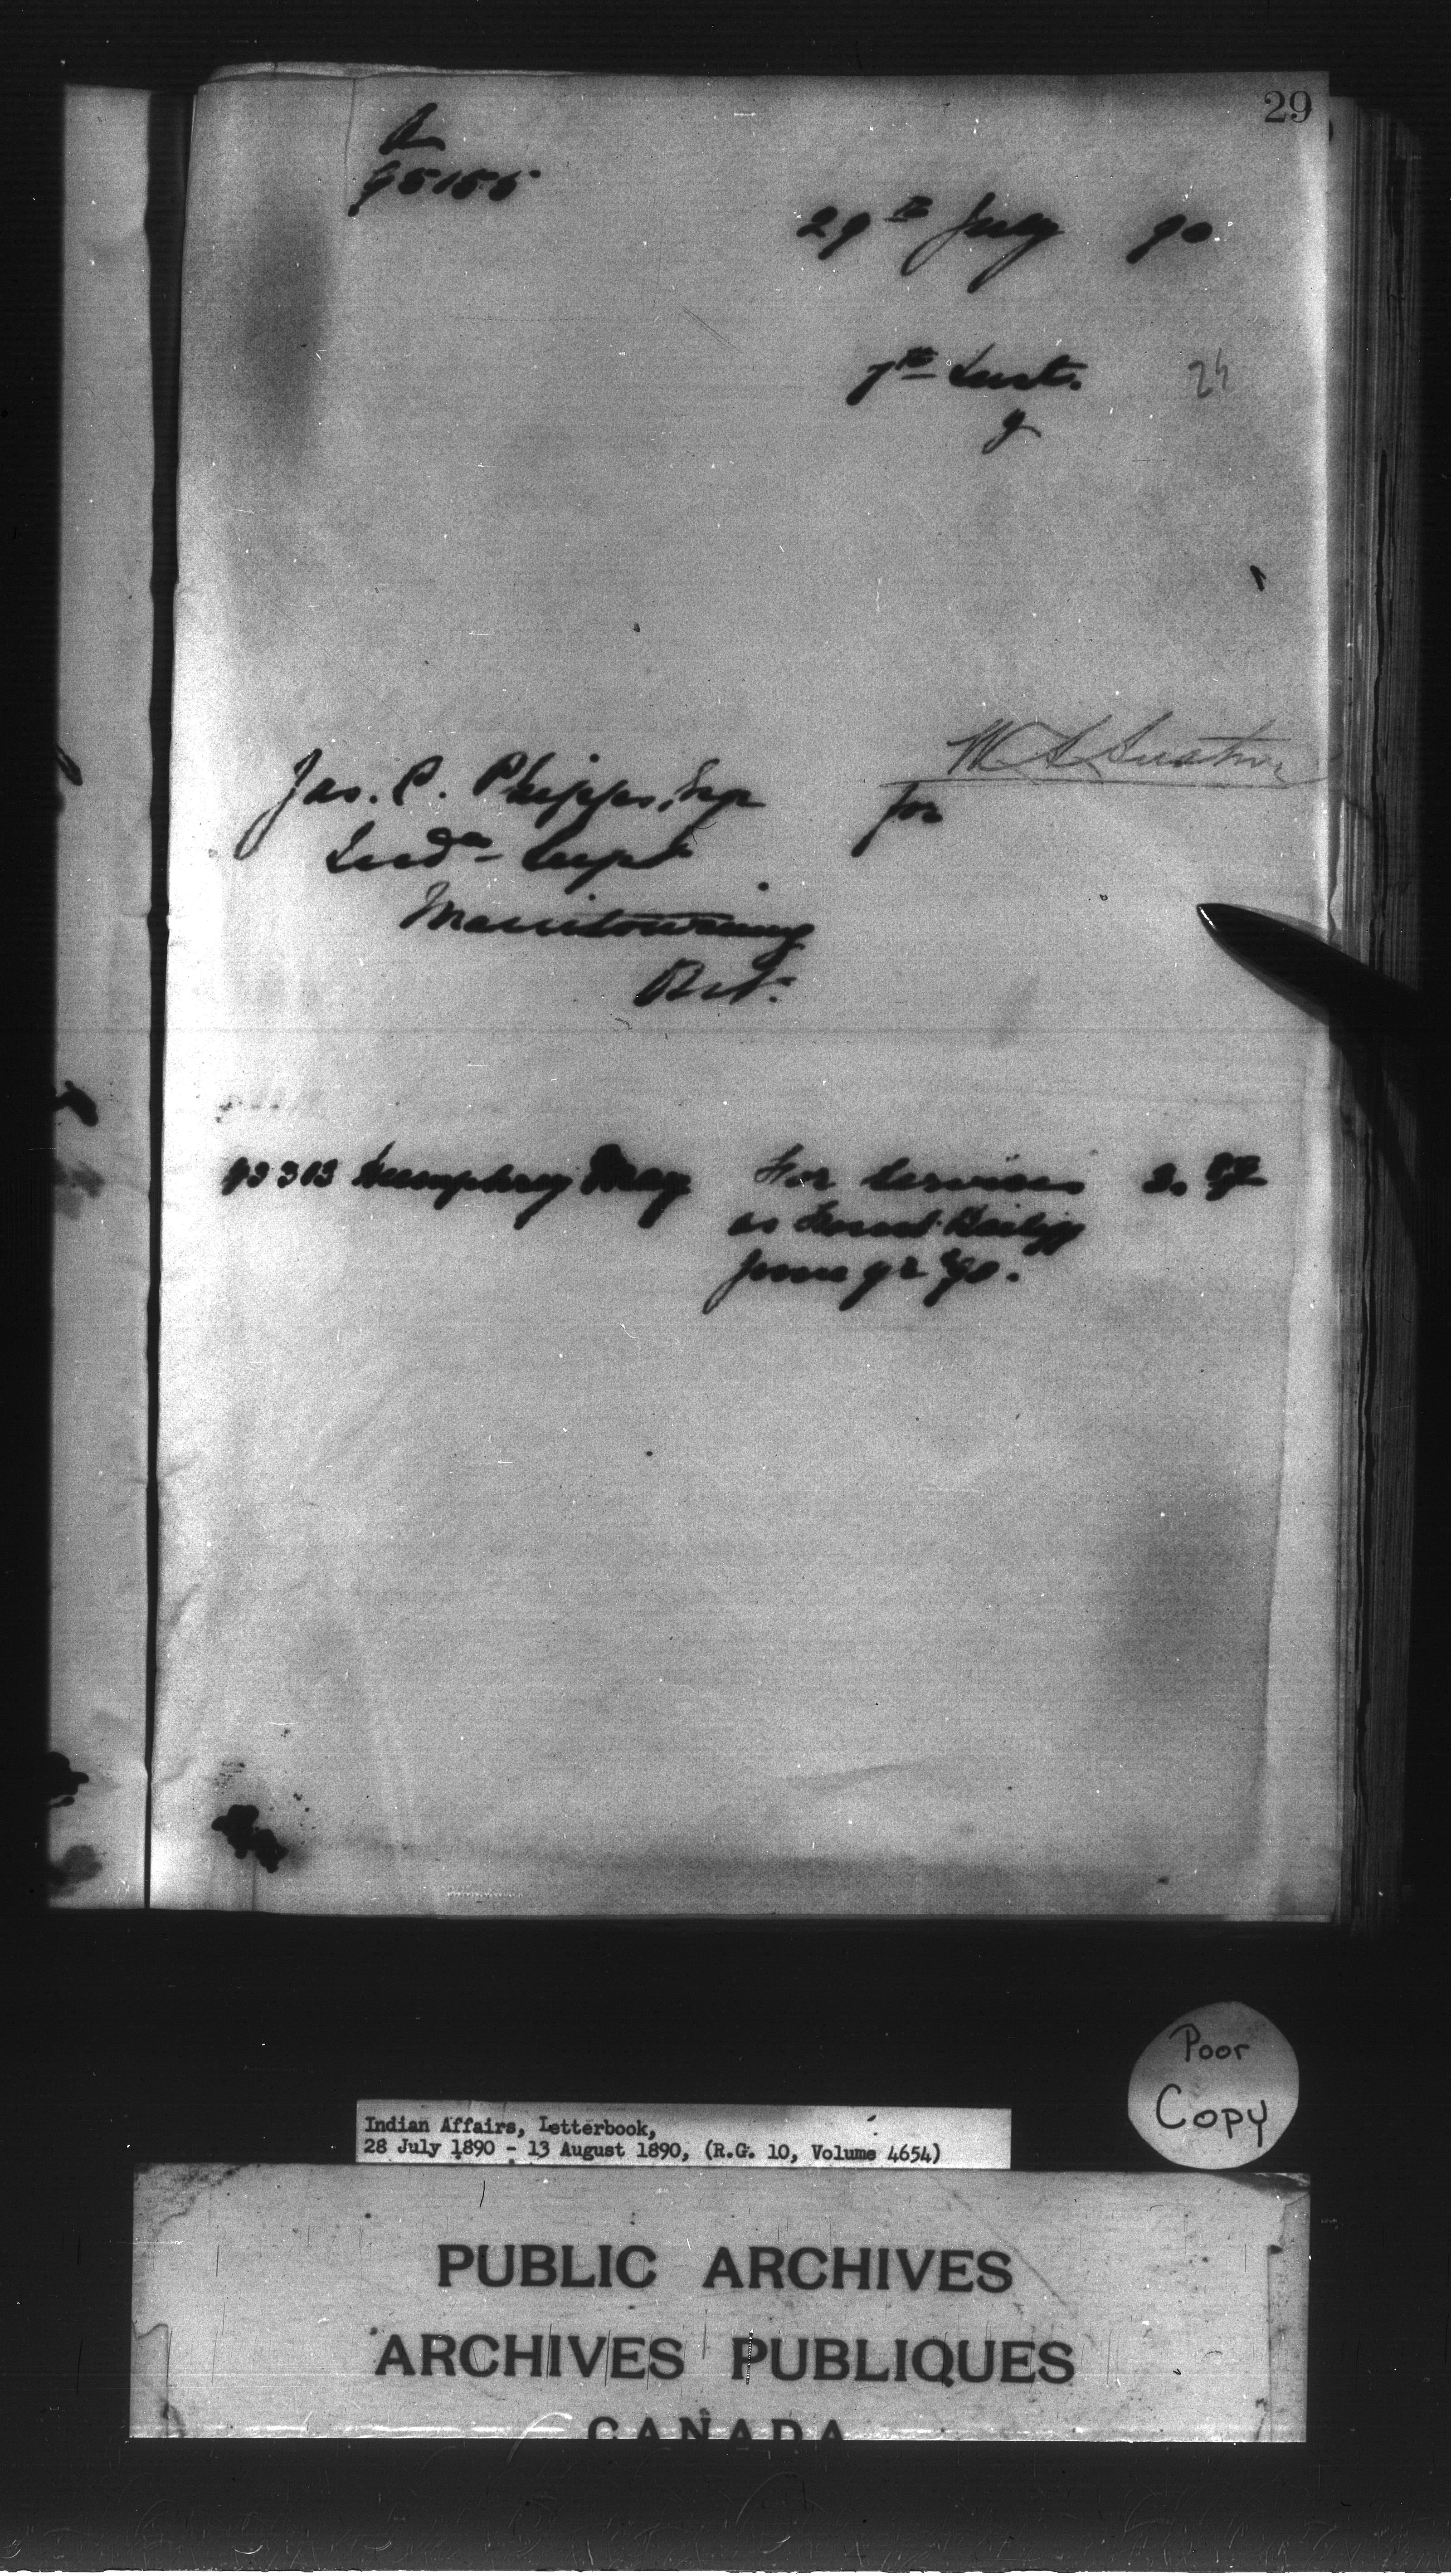 29
A
95155
29th July 90
7th Inst.
24
W A Austin
Jas. C. Phipps, Esqr
for
Indn Supt
Manitowaning
Ont.
93313 Humphrey May For Services 3.
as Forest Bailiff
June qr 90.
Poor
Copy
Indian Affairs, Letterbook,
28 July 1890 - 13 August 1890, (R.G. 10, Volume 4654)
PUBLIC ARCHIVES
ARCHIVES PUBLIQUES
CANADA